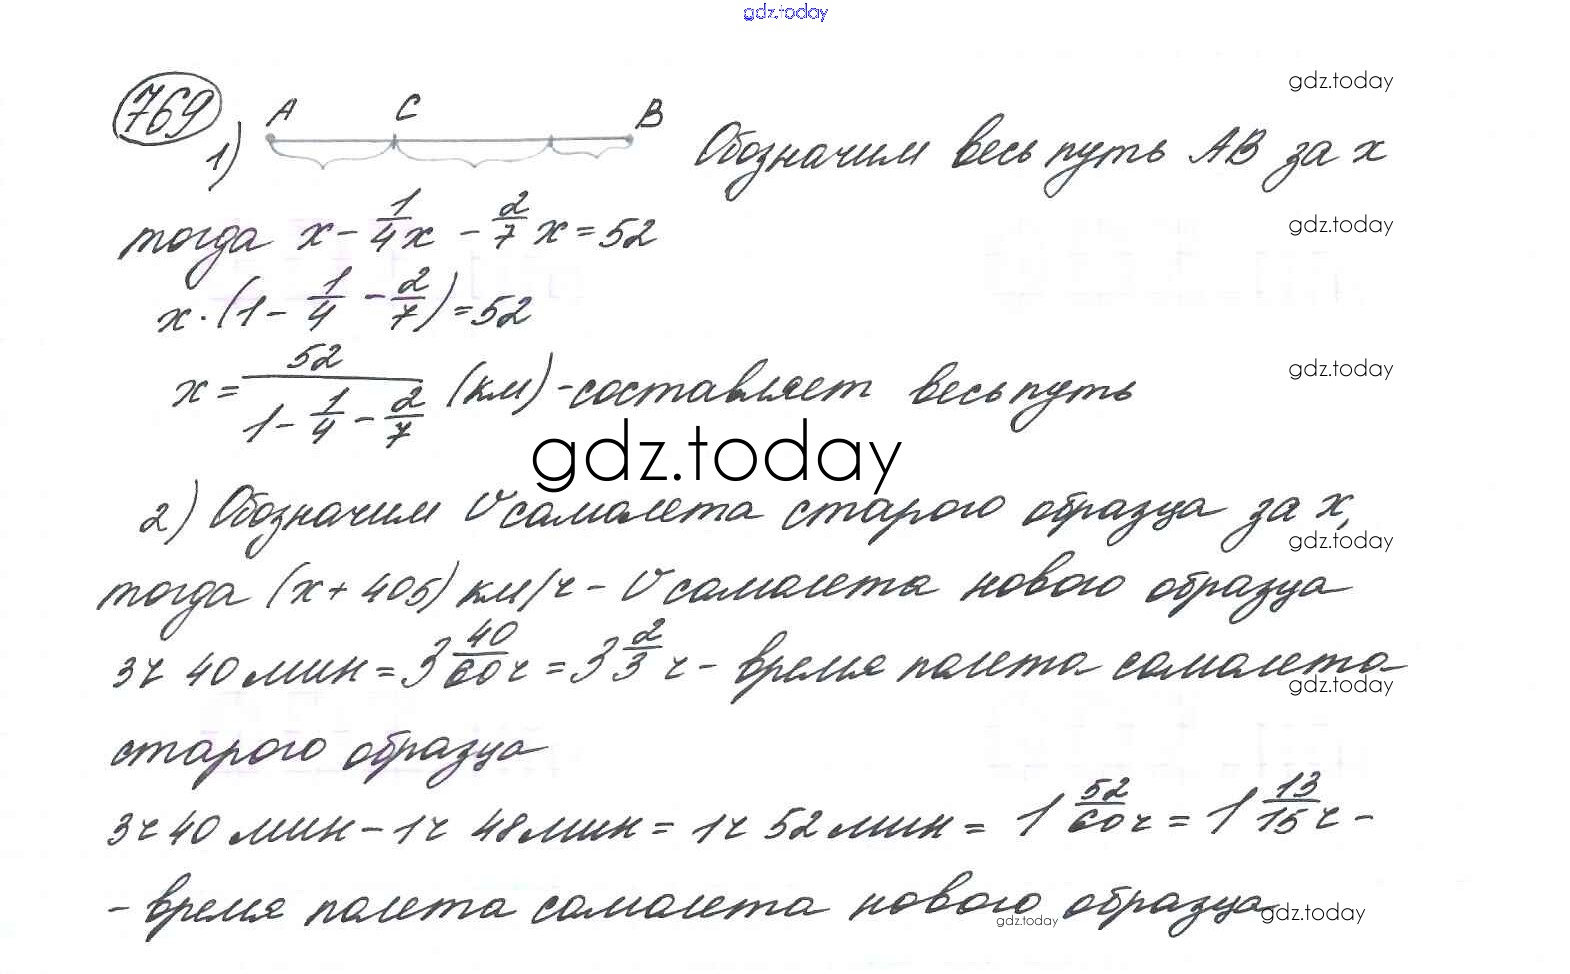 gdz.today
769
A C B
gdz.today
1) Обозначим весь путь AB за x
тогда x - 1/4 x - 2/7 x = 52
gdz.today
x · (1 - 1/4 - 2/7) = 52
x = 52/(1 - 1/4 - 2/7) (км) - составляет весь путь
gdz.today
gdz.today
2) Обозначим V самолета старого образца за x,
gdz.today
тогда (x + 405) км/ч - V самолета нового образца
3ч 40 мин = 3 40/60 ч = 3 2/3 ч - время полета самолета
gdz.today
старого образца
3ч 40 мин - 1ч 48 мин = 1ч 52 мин = 1 52/60 ч = 1 13/15 ч -
- время полета самолета нового образца
gdz.today
gdz.today